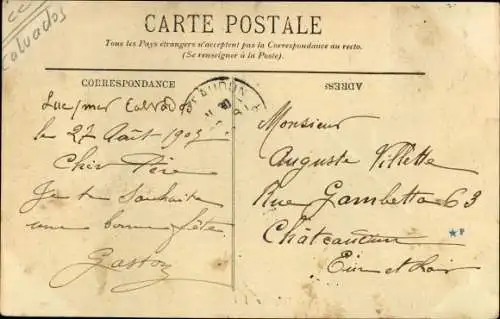 CC
Calvados
CARTE POSTALE
Tous les Pays étrangers n'acceptent pas la Correspondance au recto.
(Se renseigner à la Poste).
CORRESPONDANCE
Luc/mer Calvados
le 27 Août 1903
Cher Père
Je te souhaite
une bonne fête.
Gaston
ADRESSE
Monsieur
Auguste Villette
Rue Gambetta 63
Châteaudun
Eure et Loir